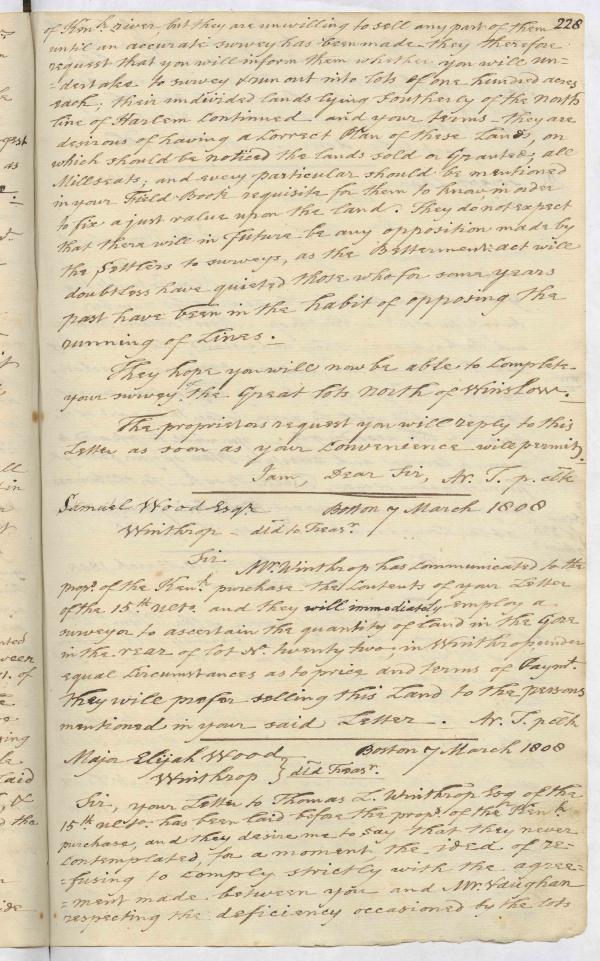 228
of Kenk. river, but they are unwilling to sell any part of them
until an accurate survey has been made they therefore
request that you will inform them whether you will un=
=dertake to survey & run out into lots of one hundred acres
each; their undivided lands lying Southerly of the north
line of Harlem continued and your terms - they are
desirous of having a correct Plan of these Lands, on
which should be noticed the lands sold or Granted; all
Millseats; and every particular should be mentioned
in your Field Book requisite for them to know, in order
to fix a just value upon the land. They do not expect
that there will in future be any opposition made by
the Settlers to surveys, as the Betterment act will
doubtless have quieted those who for some years
past have been in the habit of opposing the
running of Lines.
They hope you will now be able to complete
your survey of the Great lots north of Winslow.
The proprietors request you will reply to this
Letter as soon as your convenience will permit.
I am, Dear Sir, Ar. T. p. clk
Samuel Wood Esqr. Boston 7 March 1808
Winthrop - did to Treasr.
Sir Mr. Winthrop has communicated to the
propr. of the Kenk. purchase the Contents of your Letter
of the 15th. ulto. and they will immediately employ a
surveyor to ascertain the quantity of land in the Gore
in the rear of lot No. twenty two, in Winthrop under
equal circumstances as to price and terms of Paymt.
they will prefer selling this Land to the persons
mentioned in your said Letter. Ar. T. p clk
Major Elijah Wood Boston 7 March 1808
Winthrop } did Treasr.
Sir, your Letter to Thomas L. Winthrop Esq of the
15th ulto. has been laid before the propr. of the Kenk.
purchase, and they desire me to say that they never
contemplated, for a moment the idea of re=
=fusing to comply strictly with the agree=
=ment made between you and Mr. Vaughan
respecting the deficiency occasioned by the lots